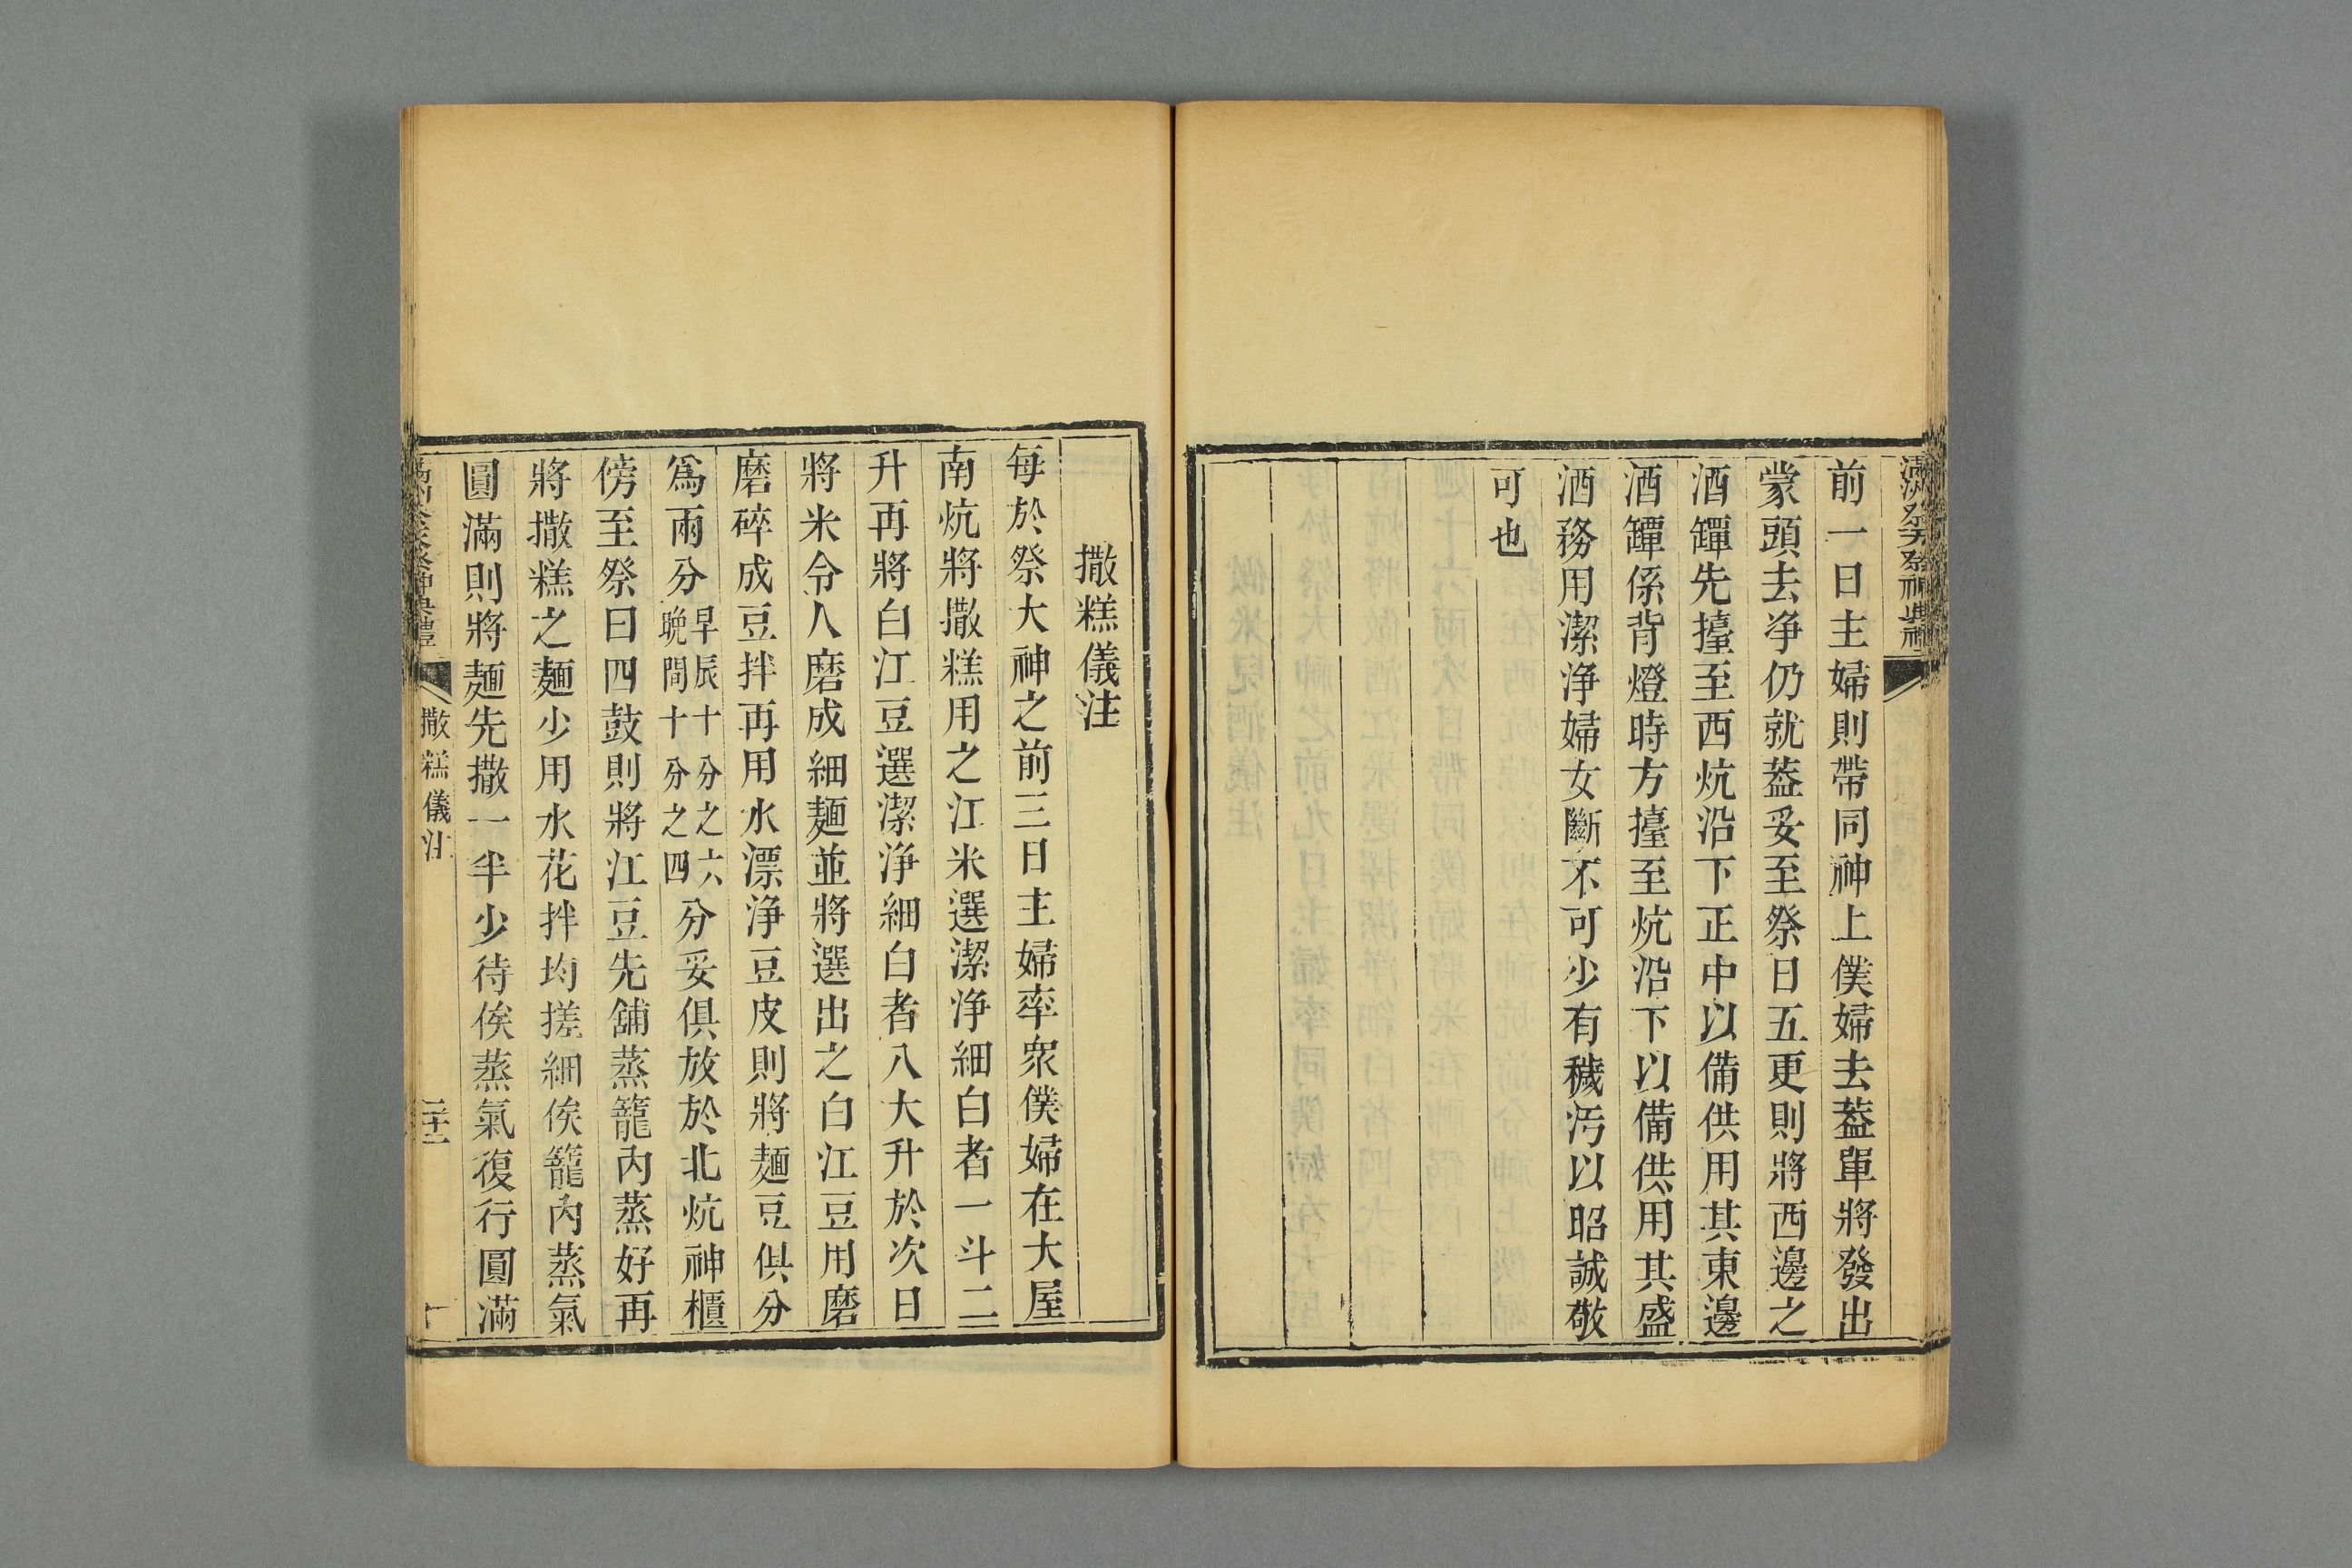 前一日主婦則帶同神上僕婦去葢單將發出
蒙頭去净仍就葢妥至祭日五更則將西邊之
酒罈先擡至西炕沿下正中以備供用其東邊
酒罈係背燈時方擡至炕沿下以備供用其盛
酒務用潔淨婦女斷不可少有穢汚以昭誠敬
可也
撒糕儀注
每於祭大神之前三日主婦率衆僕婦在大屋
南炕將撒糕用之江米選潔淨細白者一斗二
升再將白江豆選潔淨細白者八大升於次日
將米令人磨成細麵並將選出之白江豆用磨
磨碎成豆拌再用水漂淨豆皮則將麵豆俱分
爲兩分早辰十分之六晩間十分之四分妥俱放於北炕神櫃
傍至祭日四鼓則將江豆先舖蒸籠內蒸好再
將撒糕之麵少用水花拌均搓細俟籠內蒸氣
圓滿則將麵先撒一半少待俟蒸氣復行圓滿
撒糕儀注